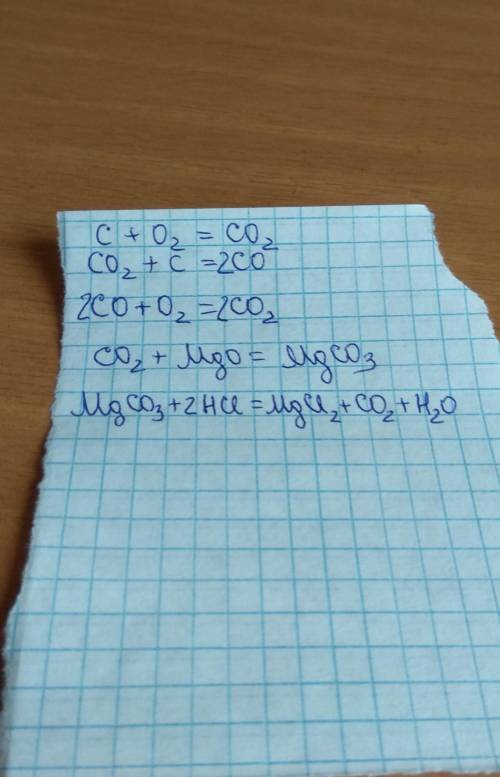 C + O₂ = CO₂
CO₂ + C = 2CO
2CO + O₂ = 2CO₂
CO₂ + MgO = MgCO₃
MgCO₃ + 2HCl = MgCl₂ + CO₂ + H₂O